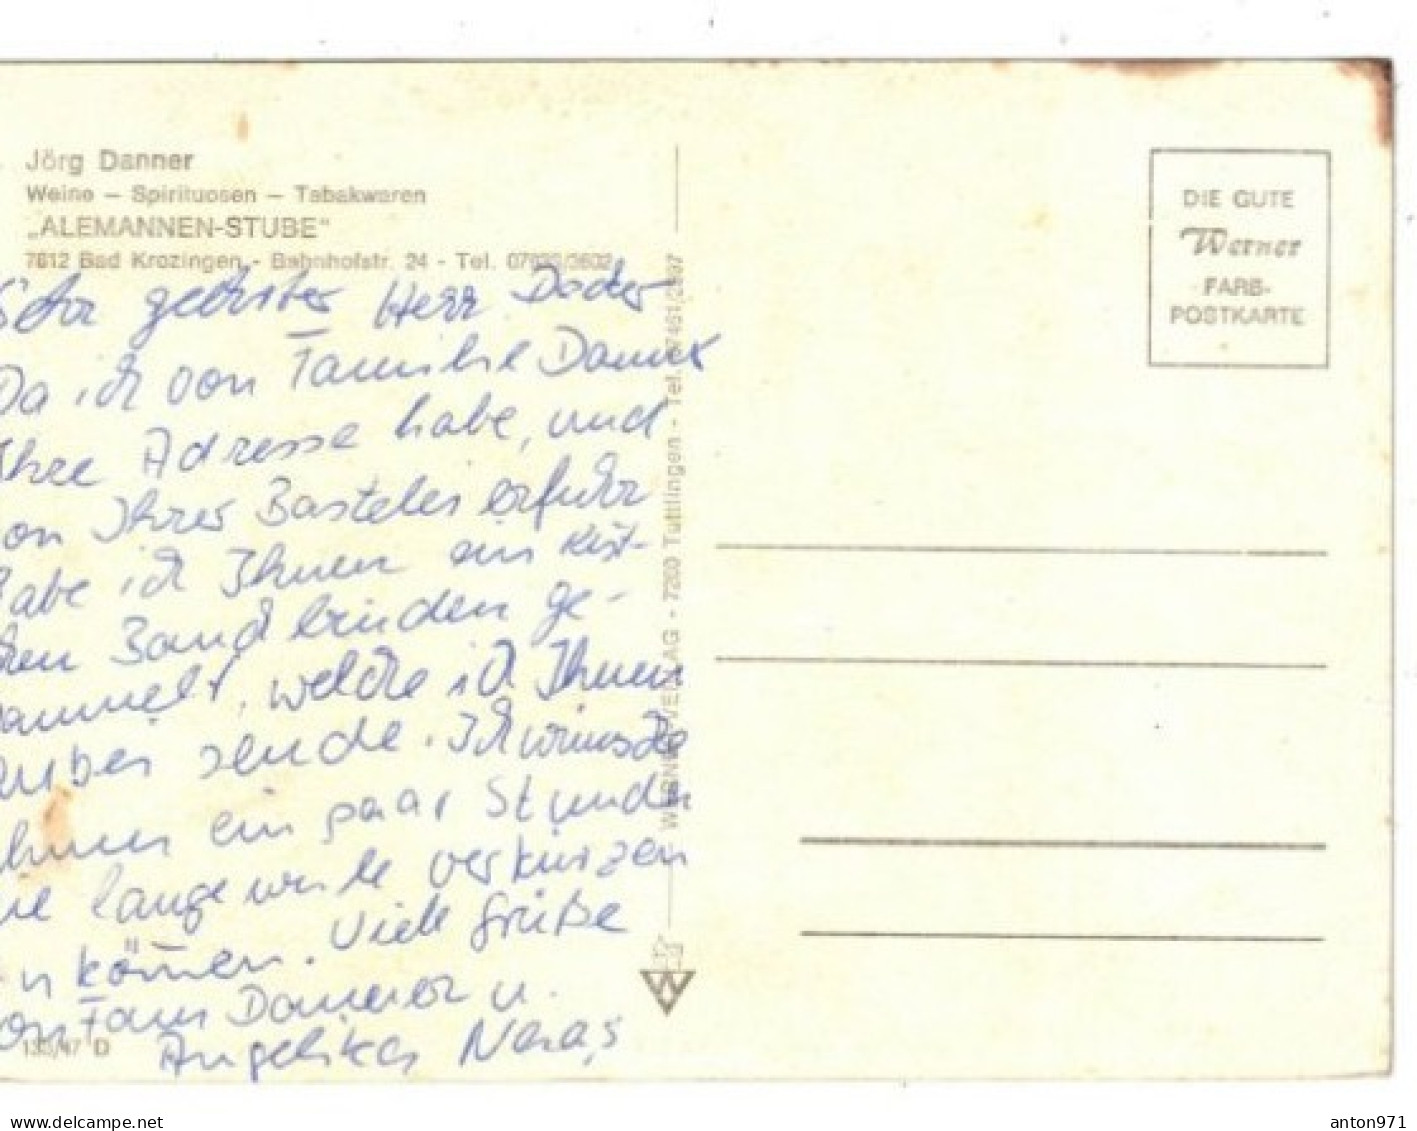 Jörg Danner
Weine – Spirituosen – Tabakwaren
„ALEMANNEN-STUBE"
7812 Bad Krozingen - Bahnhofstr. 24 - Tel. 07633/3602
Sehr geehrter Herr Doder
Da ich von Familie Danner
Ihre Adresse habe, und
von Ihrer Bastelei erfuhr
habe ich Ihnen ein Kist-
chen Bandbinden ge-
sammelt, welche ich Ihnen
anbei sende. Ich wünsche
Ihnen ein paar Stunden
die langeweile verkürzen
zu können. Viele Grüße
von Fam Danner u.
Angelika
133/47 D
WERNER VERLAG - 7200 Tuttlingen - Tel. 07461/2897
W
DIE GUTE
Werner
FARB-
POSTKARTE
www.delcampe.net
anton971